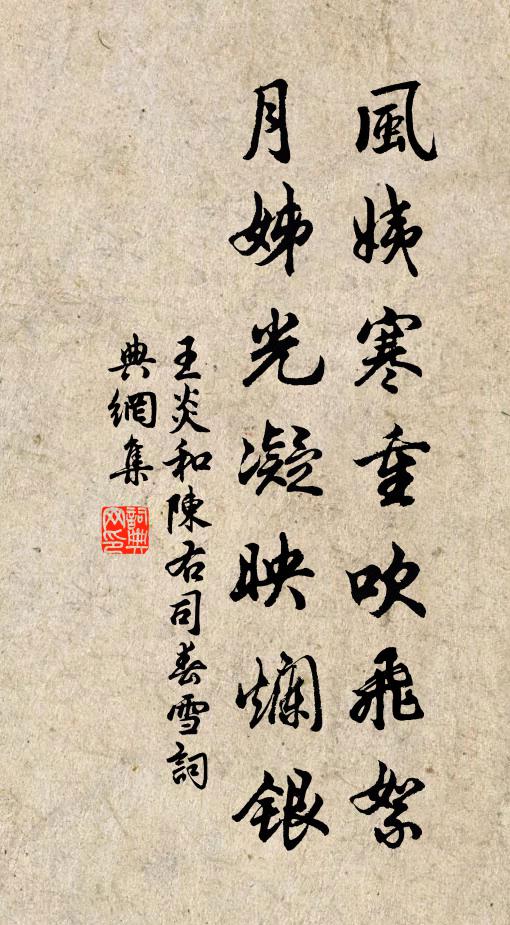 風姨寒重吹飛絮
月姊光凝映爛銀
王炎和陳右司春雪詞
典網集
詞典網印